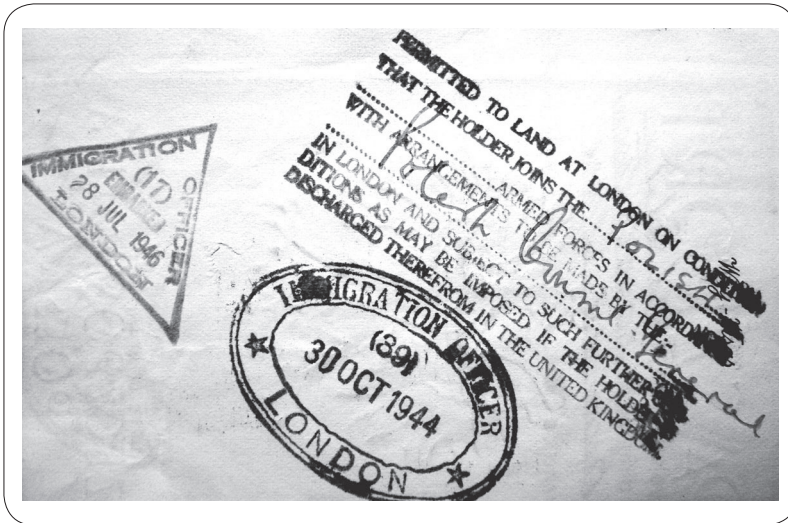 IMMIGRATION OFFICER
(17)
EMBARKED
28 JUL 1946
LONDON
PERMITTED TO LAND AT LONDON ON CONDITION
THAT THE HOLDER JOINS THE POLISH
ARMED FORCES IN ACCORDANCE
WITH ARRANGEMENTS TO BE MADE BY THE
Polish General
IN LONDON AND SUBJECT TO SUCH FURTHER
DITIONS AS MAY BE IMPOSED IF THE HOLDER
DISCHARGED THEREFROM IN THE UNITED KINGDOM
IMMIGRATION OFFICER
(89)
30 OCT 1944
LONDON